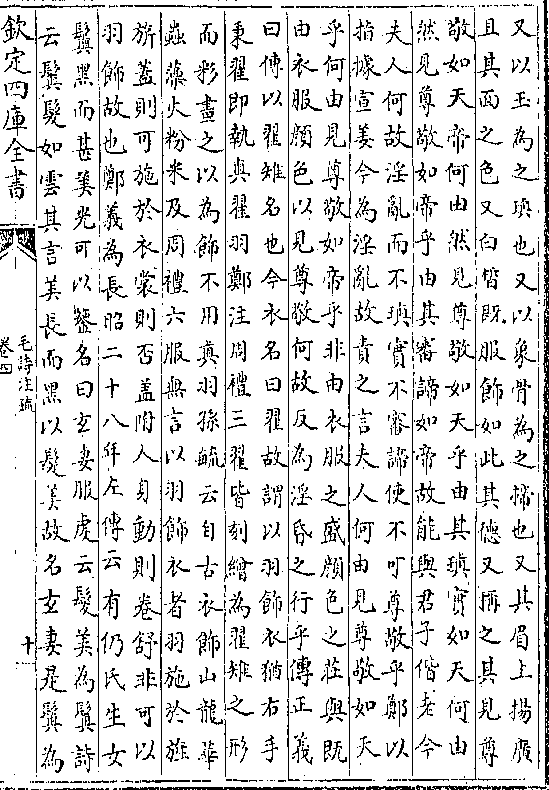 又以玉為之瑱也又以象骨為之揥也又其眉上揚廣
且其面之色又白皙既服飾如此其德又稱之其見尊
敬如天帝何由然見尊敬如天乎由其瑱實如天何由
然見尊敬如帝乎由其審諦如帝故能與君子偕老今
夫人何故淫亂而不瑱實不審諦使不可尊敬乎鄭以
指據宣姜今為淫亂故責之言夫人何由見尊敬如天
乎何由見尊敬如帝乎非由衣服之盛顏色之莊與既
由衣服顏色以見尊敬何故反為淫昏之行乎傳正義
曰傳以翟雉名也今衣名曰翟故謂以羽飾衣猶右手
秉翟即執真翟羽鄭注周禮三翟皆刻繒為翟雉之形
而彩畫之以為飾不用真羽孫毓云自古衣飾山龍華
蟲藻火粉米及周禮六服無言以羽飾衣者羽施於旌
旂蓋則可施於衣裳則否蓋附人身動則卷舒非可以
羽飾故也鄭義為長昭二十八年左傳云有仍氏生女
鬒黑而甚美光可以鑒名曰玄妻服虔云髮美為鬒詩
云鬒髮如雲其言美長而黑以髮美故名玄妻是鬒為
欽定四庫全書
毛詩注疏
卷四
十